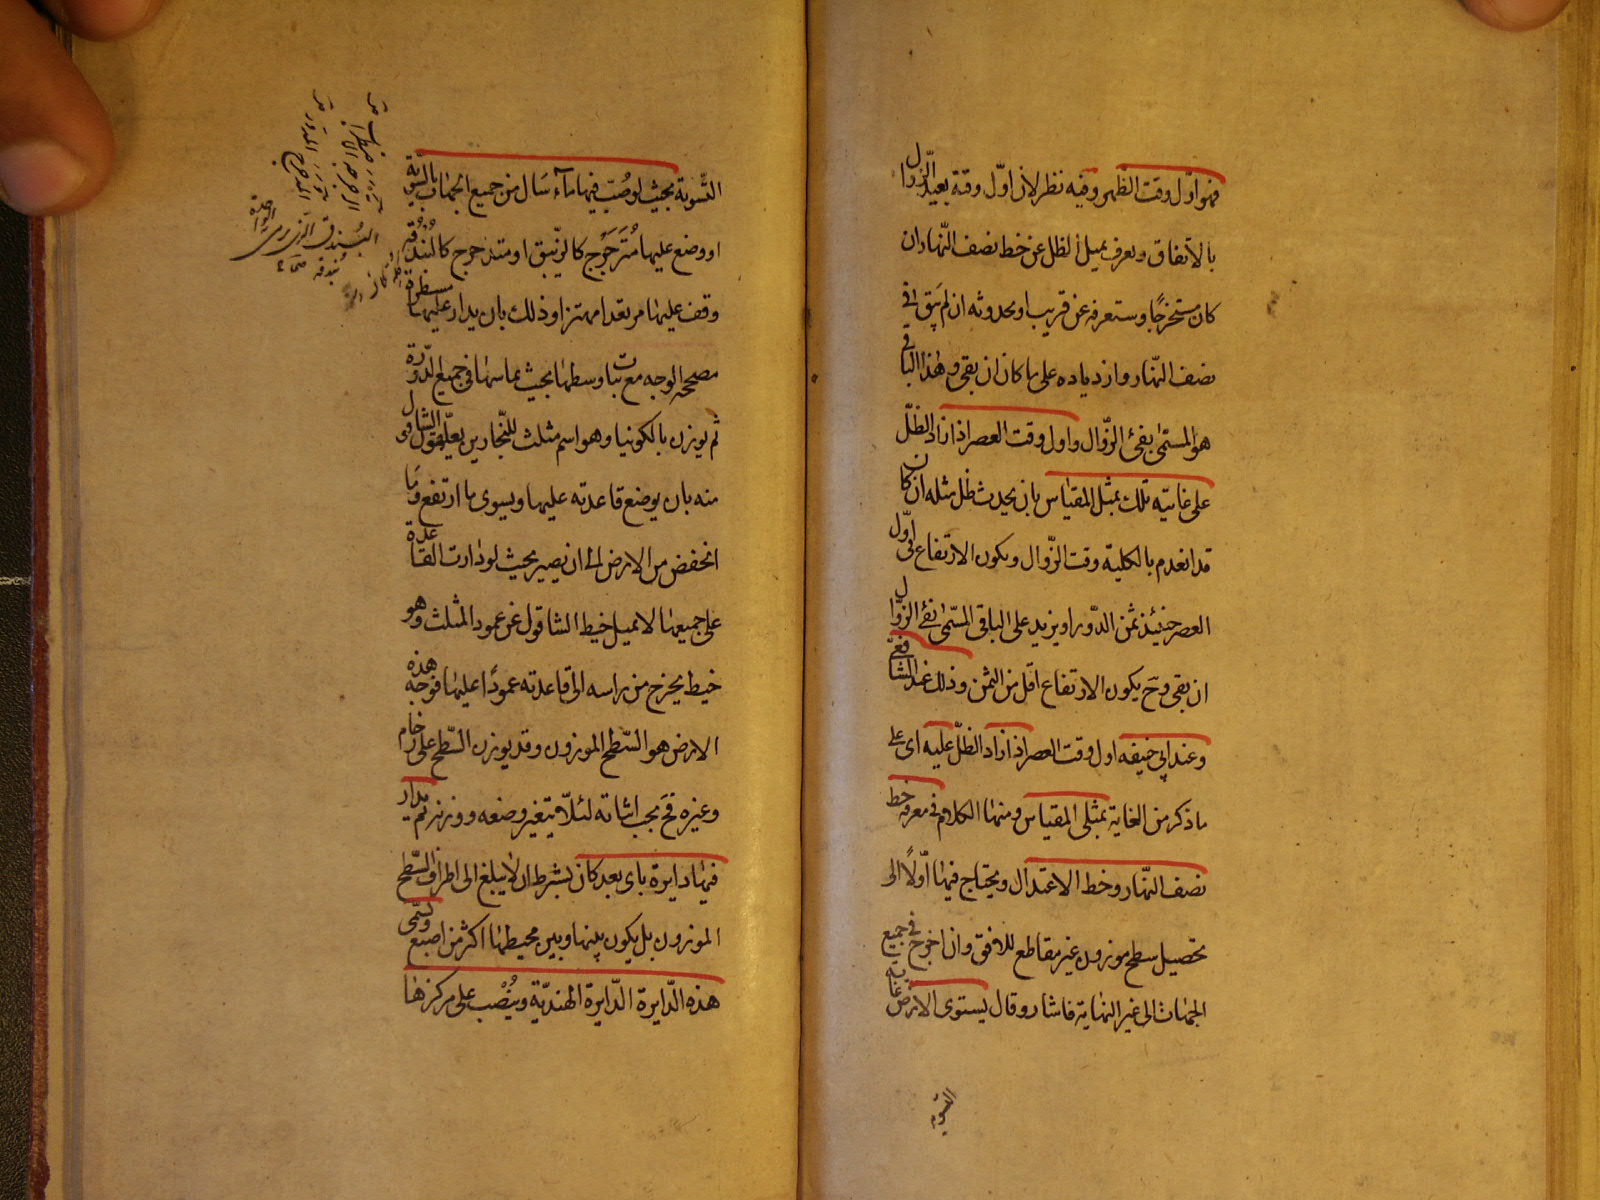 فهو اوّل وقت الظهر وفيه نظر لان اوّل وقته بعيد الزّوال
بالاتفاق ويعرف بميل الظل عن خط نصف النّهار ان
كان مستخرجًا وستعرفه عن قريب او بحدوثه ان لم يبق في
نصف النّهار وازدياده على ما كان ان بقى وهذا الباقى
هو المسمّى بفئ الزّوال واول وقت العصر اذا زاد الظلّ
على غايته تلك بمثل المقياس بان يحدث ظل مثله ان كان
قد انعدم بالكلية وقت الزّوال ويكون الارتفاع في اوّل
العصر حينئذ ثمن الدّور او يزيد على الباقى المسمّى بفئ الزوّال
ان بقى وح يكون الارتفاع اقل من الثمن وذلك عند الشافعى
وعند ابى حنيفه اول وقت العصر اذا زاد الظلّ عليه اى على
ما ذكر من الغاية بمثلى المقياس ومنها الكلام في معرفة خط
نصف النّهار وخط الاعتدال ويحتاج فيها اوّلاً الى
تحصيل سطح موزون غير مقاطع للافق وان اخرج في جميع
الجهات الى غير النهاية فاشار وقال يستوى الارض غاية
التسوية
التّسوية بحيث لو صُبّ فيها مآء سَال من جميع الجهات بالسّويّة
او وضع عليها مُتَرَجْرِج كالزّيبق او متدحرج كالبُنْدُقة
وقف عليها مرتعدا مهتزا وذلك بان يدار عليها مسطرة
مصححة الوجه مع ثبات وسطها بحيث يماسها في جميع الدّورة
ثم يوزن بالكونيا وهو اسم مثلث للنّجارين يعلّقون الشاقول
منه بان يوضع قاعدته عليها ويسوى ما ارتفع وَمَا
انخفض من الارض الى ان يصير بحيث لو دارت القاعدة
على جميعها لا يميل خيط الشاقول عن عمود المثلث وهو
خيط يخرج من راسه الى قاعدته عمودًا عليها فوجه هذه
الارض هو السّطح الموزون وقد يوزن السّطح على رخام
وغيره فح يجب اثباته لئلّا يتغير وضعه ووزنه ثم يدار
فيها دايرة باى بعد كان بشرط ان لا يبلغ الى اطراف السّطح
الموزون بل يكون بينها وبين محيطها اكثر من اصبع وتسمّى
هذه الدّايرة الدّايرة الهندية ويُنْصب على مركزها
الرجرجه الاضطراب
البندق الذى يرمى الواحدة
بندقه